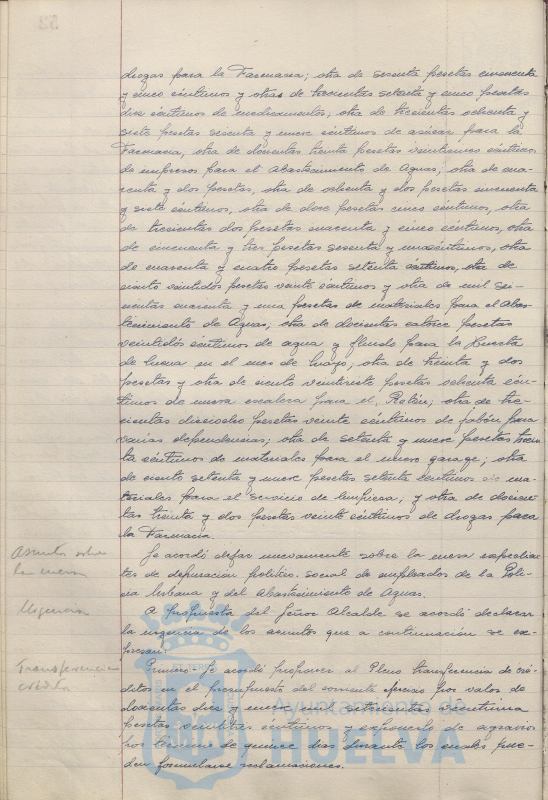 drogas para la Farmacia; otra de sesenta pesetas cincuenta
y cinco céntimos y otras de trescientas setenta y cinco pesetas
diez céntimos de medicamentos; otra de trescientas ochenta y
siete pesetas sesenta y nueve céntimos de azúcar para la
Farmacia, otra de doscientas treinta pesetas veintinueve céntimos
de impresos para el Abastecimiento de Aguas; otra de cua-
renta y dos pesetas, otra de ochenta y dos pesetas cincuenta
y siete céntimos, otra de doce pesetas cinco céntimos, otra
de trescientas dos pesetas cuarenta y cinco céntimos, otra
de cincuenta y tres pesetas sesenta y un céntimos, otra
de cuarenta y cuatro pesetas setenta céntimos, otra de
ciento veintidos pesetas veinte céntimos y otra de mil seis-
cientas cuarenta y una pesetas de materiales para el Abas-
tecimiento de Aguas; otra de doscientas catorce pesetas
veintidos céntimos de agua y fluido para la
de en el mes de Mayo, otra de treinta y dos
pesetas y otra de ciento veintisiete pesetas ochenta cén-
timos de nueva escalera para el Reloj; otra de tres-
cientas dieciocho pesetas veinte céntimos de jabón para
varias dependencias; otra de setenta y nueve pesetas trein-
ta céntimos de materiales para el nuevo garage; otra
de ciento setenta y nueve pesetas setenta céntimos de ma-
teriales para el servicio de Limpieza; y otra de doscien-
tas treinta y dos pesetas veinte céntimos de drogas para
la Farmacia.
Asuntos sobre
la mesa
Se acordó dejar nuevamente sobre la mesa expedien-
tes de depuración político-social de empleados de la Poli-
cía Urbana y del Abastecimiento de Aguas.
Urgencia
A propuesta del Señor Alcalde se acordó declarar
la urgencia de los asuntos que a continuación se ex-
presan:
Transferencia
crédito
Primero: Se acordó proponer al Pleno transferencia de cré-
ditos en el presupuesto del corriente ejercicio por valor de
doscientas diez y nueve mil
pesetas céntimos y exponerlo de agravios
por término de quince días durante los cuales pue-
den formularse reclamaciones.
Ayuntamiento de
HUELVA